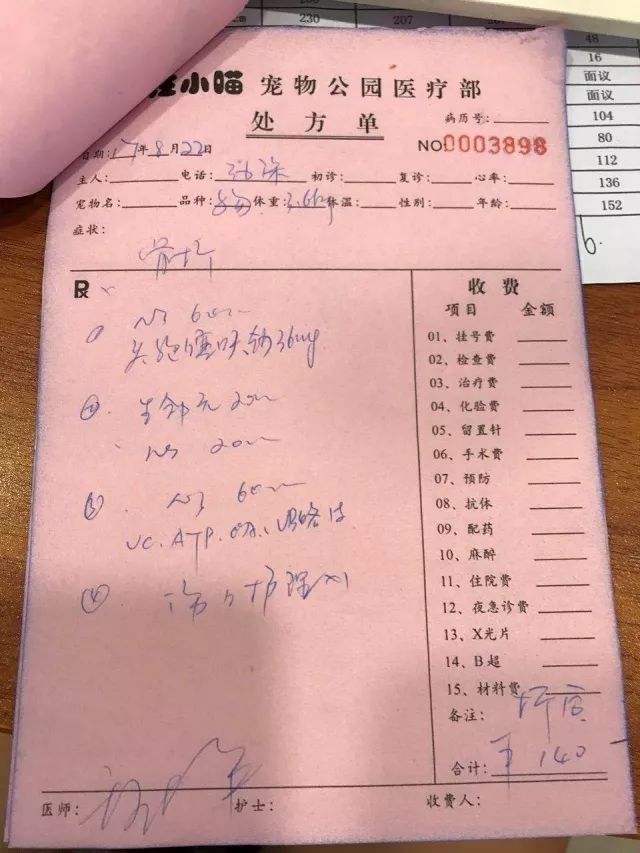 230 207
48
16
面议
面议
104
80
112
136
152
小喵 宠物公园医疗部
处方单
病历号:
日期: 17年8月22日
NO 0003898
主人: 电话: 初诊: 复诊: 心率:
宠物名: 品种: 体重: 3.6kg 体温: 性别: 年龄:
症状: 骨折
R
① NS 60ml
头孢噻呋钠36mg
② 20ml
NS 20ml
③ NS 60ml
VC. ATP.
④ 伤口护理x1
收费
项目 金额
01、挂号费
02、检查费
03、治疗费
04、化验费
05、留置针
06、手术费
07、预防
08、抗体
09、配药
10、麻醉
11、住院费
12、夜急诊费
13、X光片
14、B超
15、材料费
备注:
合计: 140
医师: 护士: 收费人: